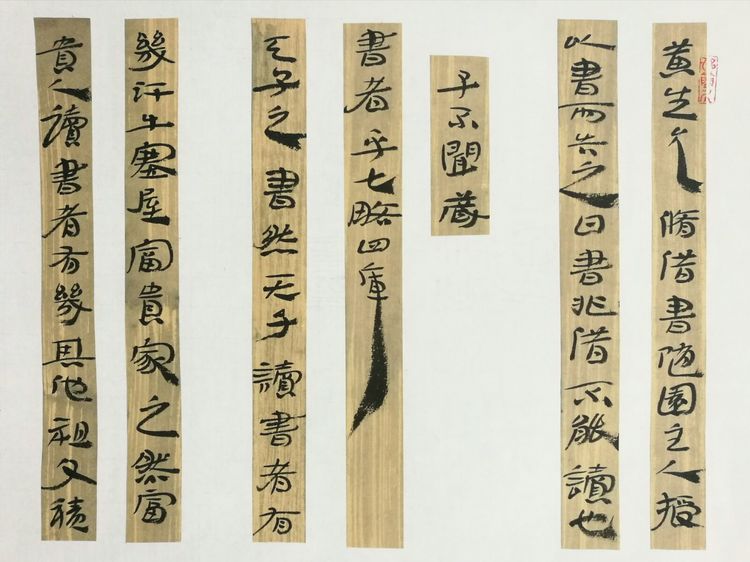 黄生允脩借書隨園主人授
以書而告之曰書非借不能讀也
子不聞藏
書者乎七略四庫
天子之書然天子讀書者有
幾汗牛塞屋富貴家之然富
貴人讀書者有幾其他祖父積